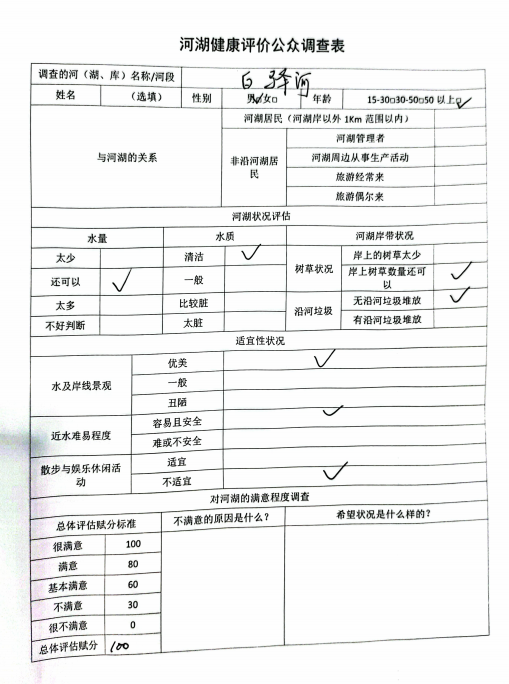 河湖健康评价公众调查表
调查的河（湖、库）名称/河段 白 河
姓名 （选填） 性别 男□✓女□ 年龄 15-30□30-50□50 以上□✓
与河湖的关系 河湖居民（河湖岸以外 1Km 范围以内）
非沿河湖居民 河湖管理者
河湖周边从事生产活动
旅游经常来
旅游偶尔来
河湖状况评估
水量 水质 河湖岸带状况
太少 清洁 ✓ 树草状况 岸上的树草太少
还可以 ✓ 一般 岸上树草数量还可以 ✓
太多 比较脏 沿河垃圾 无沿河垃圾堆放 ✓
不好判断 太脏 有沿河垃圾堆放
适宜性状况
水及岸线景观 优美 ✓
一般
丑陋
近水难易程度 容易且安全 ✓
难或不安全
散步与娱乐休闲活动 适宜
不适宜 ✓
对河湖的满意程度调查
总体评估赋分标准 不满意的原因是什么？ 希望状况是什么样的？
很满意 100
满意 80
基本满意 60
不满意 30
很不满意 0
总体评估赋分 100